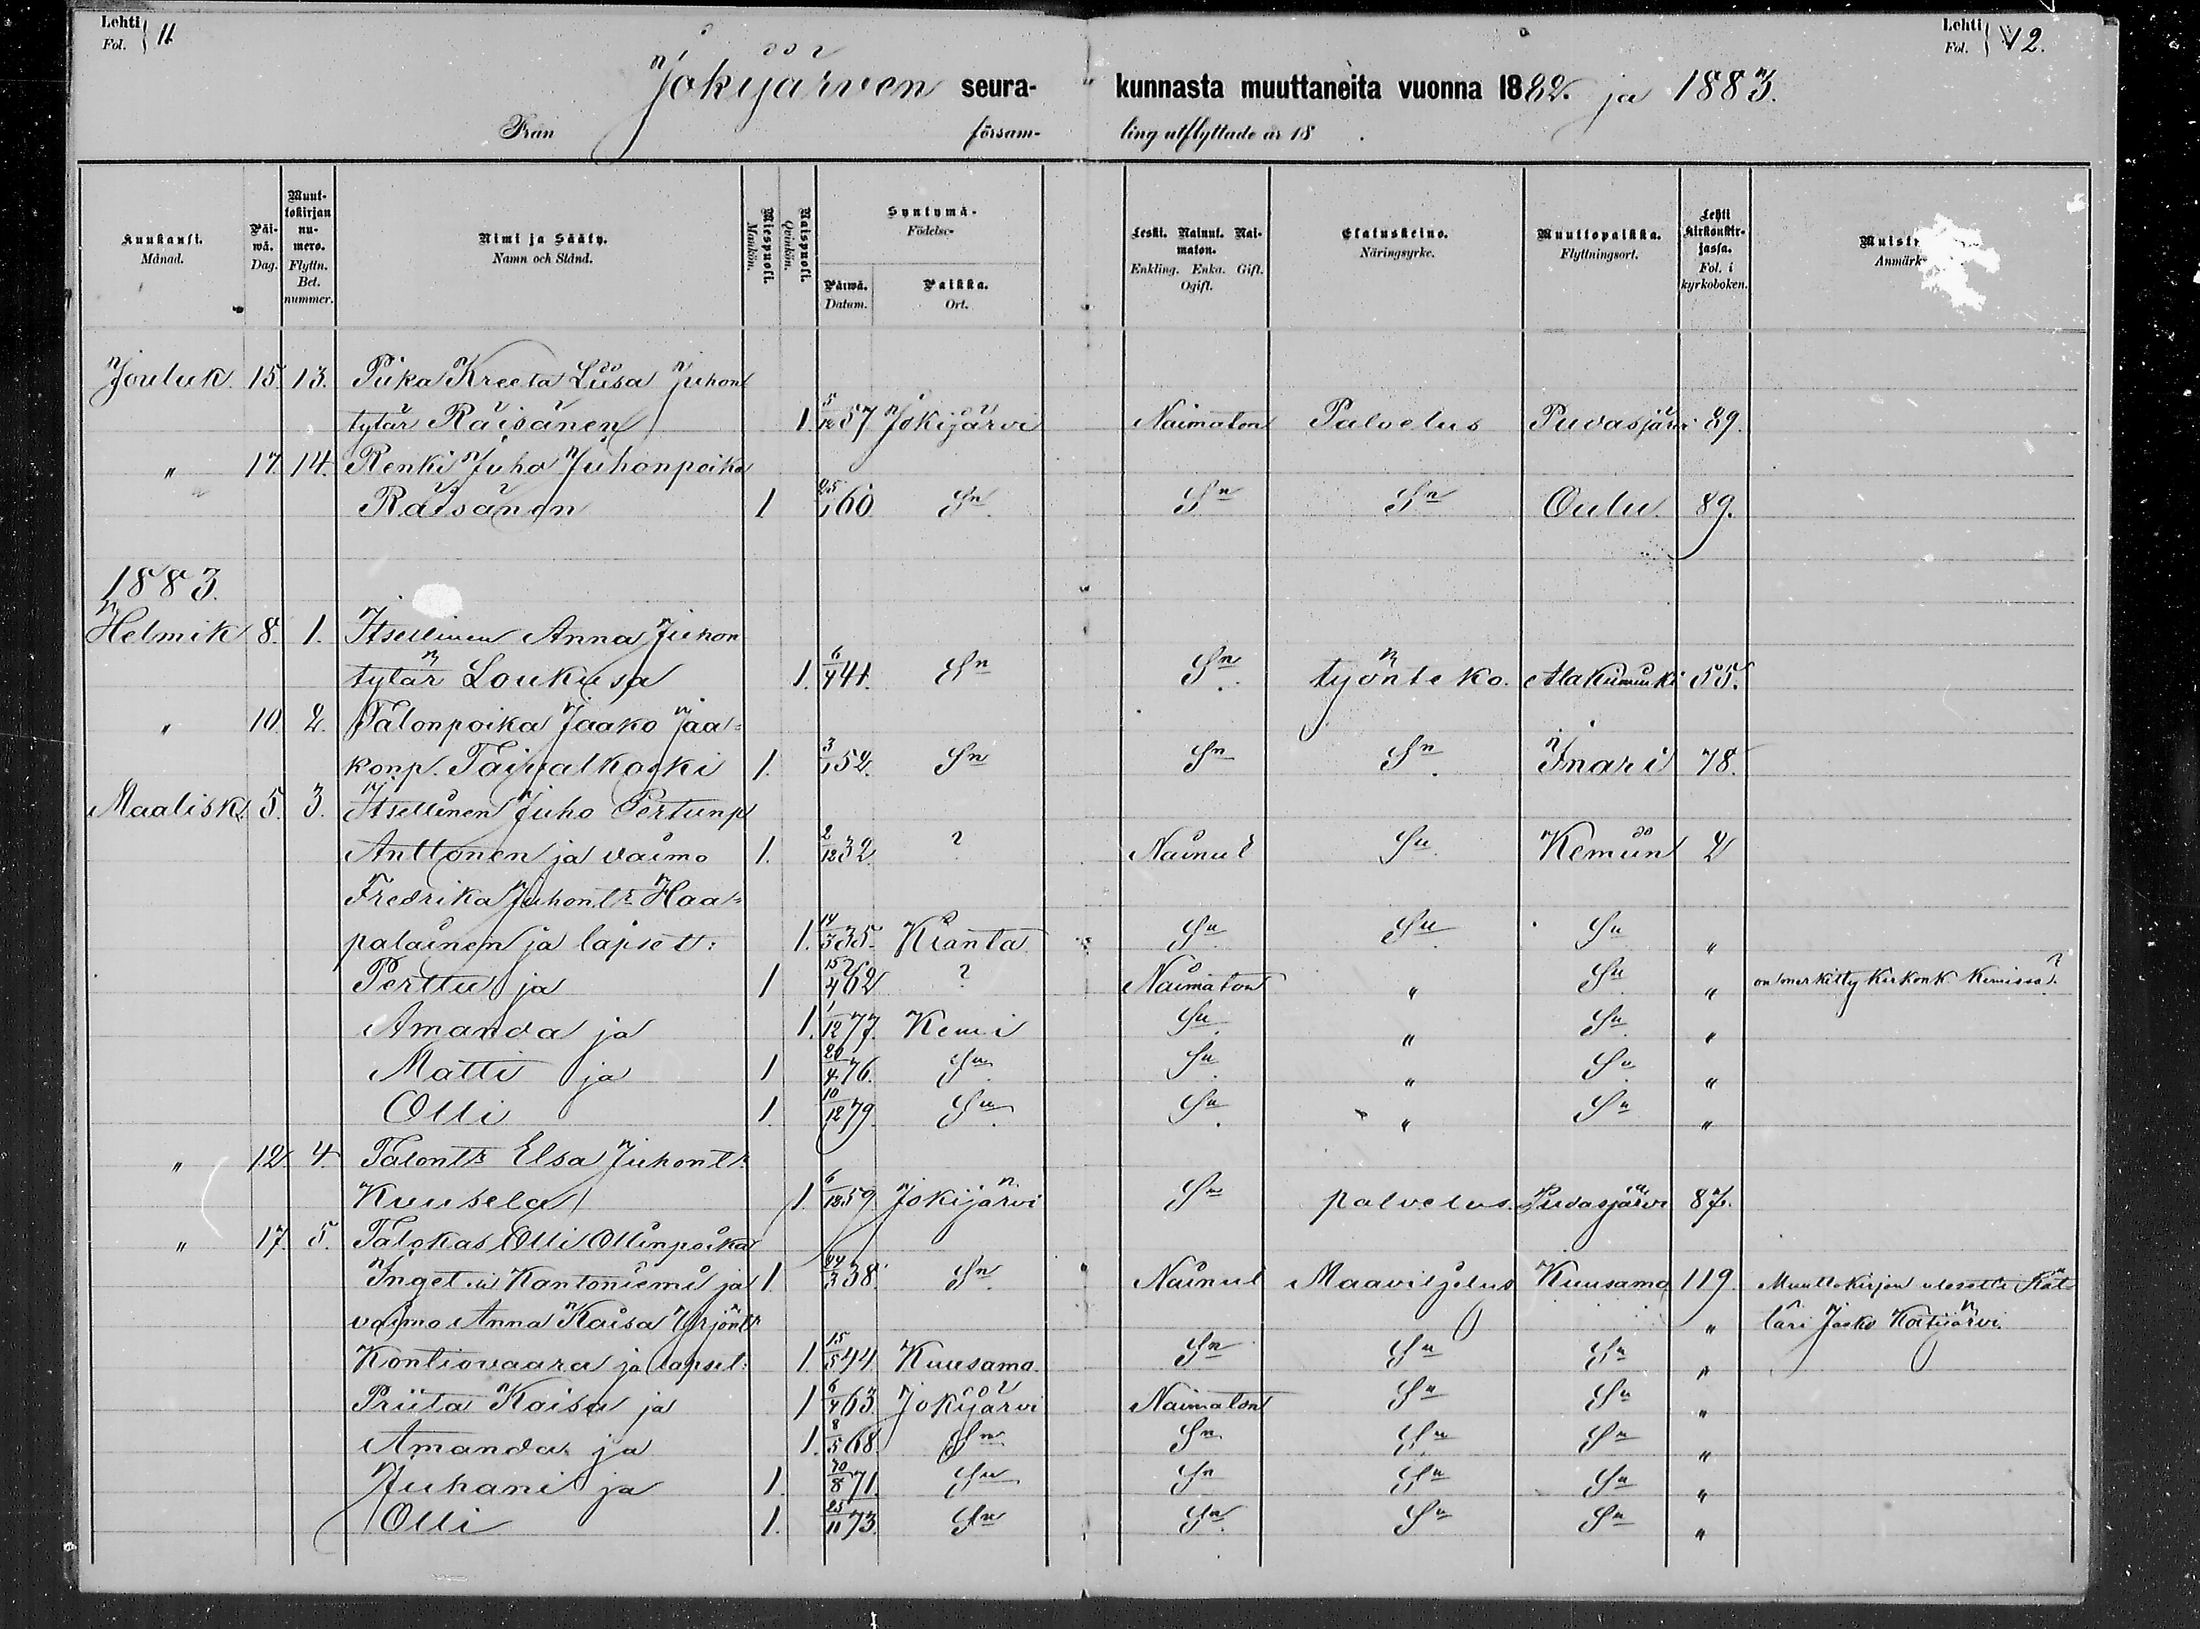 Lehti Fol. 11. Lehti Fol. 12.
Jokijärven seurakunnasta muuttaneita vuonna 1882. ja 1883.
Från församling utflyttade år 18 .
Kuukausi. Månad. Päiwä. Dag. Muuttokirjan numero. Flyttn. Bet. nummer. Nimi ja Sääty. Namn och Stånd. Miespuoli. Mankön. Naispuoli. Qvinkön. Syntymä- Födelse- Päiwä. Datum. Paikka. Ort. Leski. Nainut. Naimaton. Enkling. Enka. Gift. Ogift. Elatuskeino. Näringsyrke. Muuttopaikka. Flyttningsort. Lehti kirkonkirjassa. Fol. i kyrkoboken. Muist Anmärk
Jouluk. 15. 13. Piika Kreeta Liisa Juhon
tytär Räisänen 1. 5/12 57 Jokijärvi Naimaton Palvelus Pudasjärvi 89.
" 17. 14. Renki Juho Juhonpoika
Räisänen 1 25/1 60 Sn Sn Sn Oulu. 89.
1883.
Helmik 8. 1. Itsellinen Anna Juhon
tytär Loukusa 1. 6/4 41. Sn Sn. työnteko. Alakiiminki 55.
" 10. 2. Talonpoika Jaako Jaa-
konp. Taivalkoski 1. 3/1 52. Sn Sn Sn. Inari 78.
Maalisk. 5. 3. Itsellinen Juho Pertunp
Anttonen ja vaimo 1. 2/12 32 ? Nainut Sn. Kemiin 2
Fredrika Juhontr Haa-
palainen ja lapset: 1. 14/3 35. Kianta Sn Sn Sn "
Perttu ja 1 15/4 62 ? Naimaton " Sn " on merkitty Kirkonk. Kemissä.
Amanda ja 1. 1/12 77. Kemi Sn " Sn "
Matti ja 1 20/4 76. Sn Sn " Sn "
Olli 1. 10/12 79. Sn. Sn. " Sn "
" 12. 4. Talontr Elsa Juhontr
Kuusela 1. 6/12 59. Jokijärvi Sn palvelus. Pudasjärvi 87.
" 17. 5. Talokas Olli Ollinpoika
Inget. Kantoniemi ja 1. 24/3 38. Sn. Nainut Maaviljelus Kuusamo 119. Muuttokirjan ulosotti Rät-
vaimo Anna Kaisa Yrjöntr " täri Jaako Koitijärvi.
Kontiovaara ja lapset: 1 15/5 44 Kuusamo. Sn Sn Sn "
Priita Kaisa ja 1 6/4 63. Jokijärvi Naimaton Sn Sn "
Amanda ja 1. 8/5 68. Sn Sn Sn Sn "
Juhani ja 1. 70/8 71. Sn Sn Sn Sn "
Olli 1. 25/11 73. Sn Sn. Sn Sn "